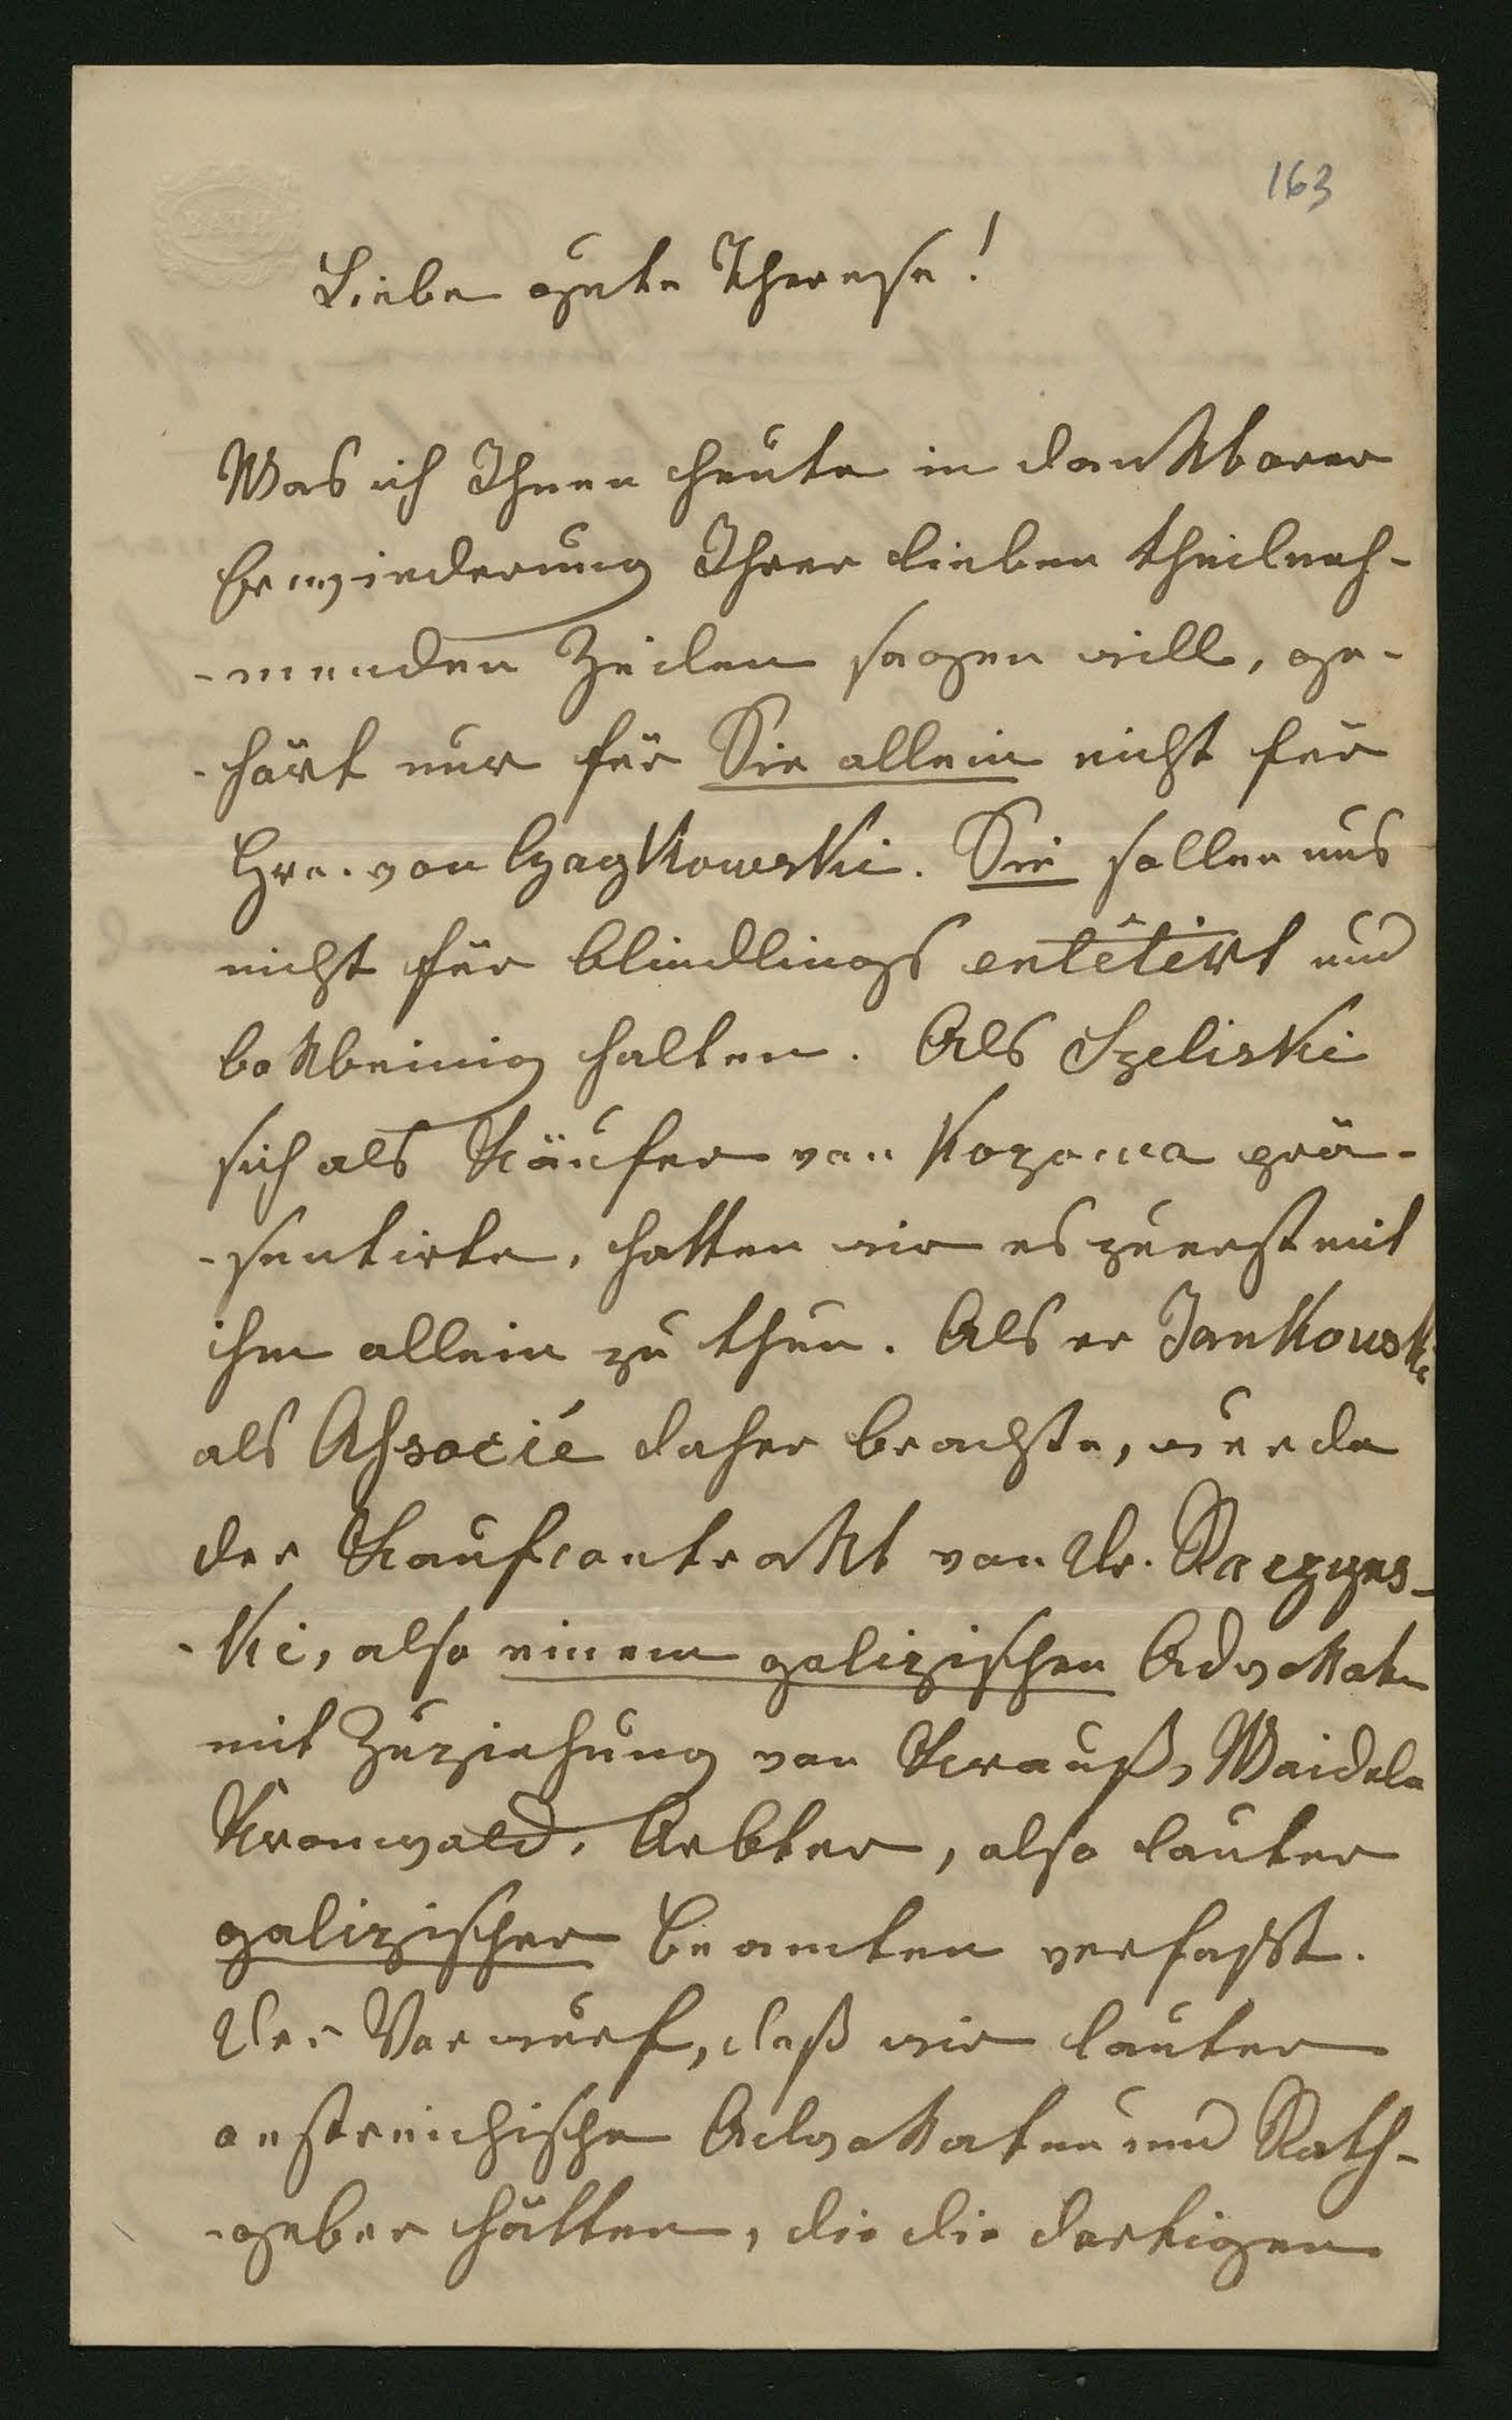 163
BATH
Liebe gute Therese!
Was ich Ihnen heute in dankbarer
Erwiederung Ihrer lieben theilneh-
-menden Zeilen sagen will, ge-
-hört nur für Sie allein nicht für
Hrn. von Czaykowski. Sie sollen uns
nicht für blindlings entêtirt und
bokbeinig halten. Als Szeliski
sich als Käufer von Kozowa prä-
-sentirte, hatten wir es zuerst mit
ihm allein zu thun. Als er Jankowski
als Associé daher brachte, wurde
der Kaufcontrakt von Dr. Raczyns-
-ki, also einem galizischen Advokaten
mit Zuziehung von Krauß, Waidele
Kronwald, Arbter, also lauter
galizischer Beamten verfasst.
Der Vorwurf, daß wir lauter
oestreichische Advokaten und Rath-
-geber hätten, die die dortigen